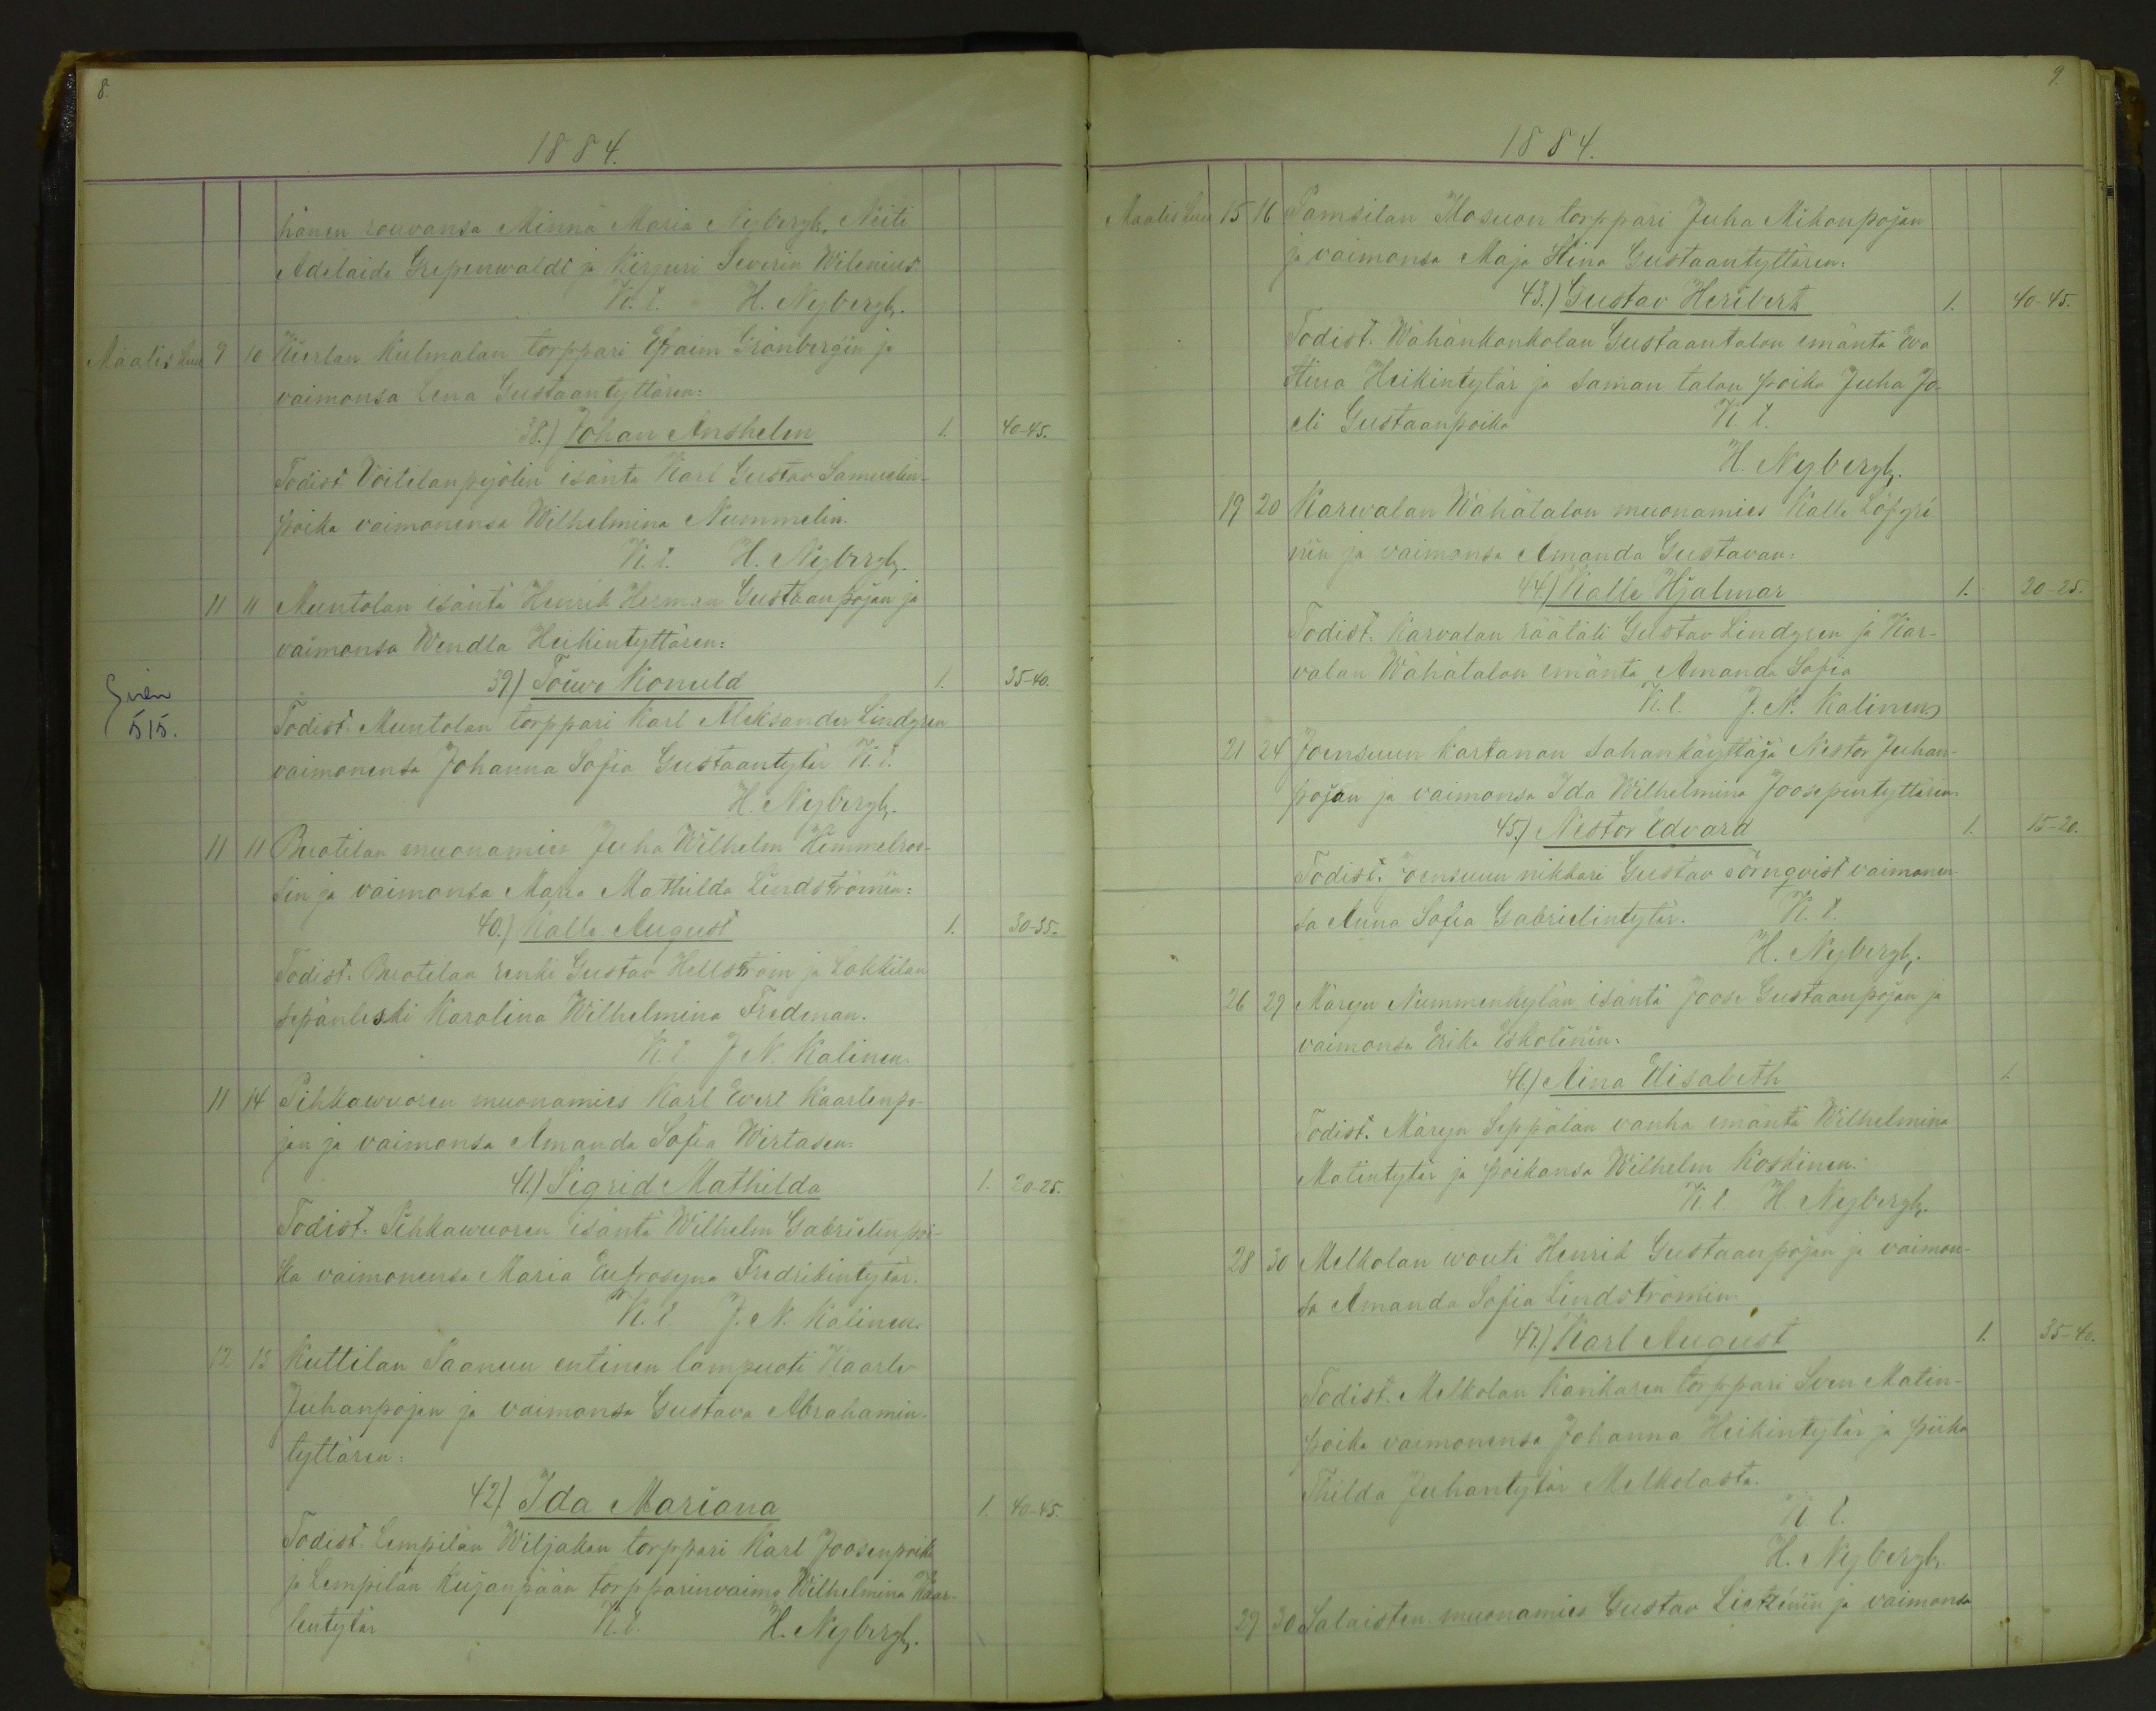 8.
1884.
hänen rouvansa Minna Maria Nybergh, Neiti
Adelaide Grepenwaldt ja Kirjuri Severin Wilenius.
K. l. H. Nybergh.
Maaliskuu 9 10 Kierlan Kulmalan torppari Efraim Grönbergin ja
vaimonsa Lena Gustaantyttären:
38.) Johan Anshelm 1. 40-45.
Todist Voitilan pyölin isäntä Karl Gustav Samuelin-
poika vaimonensa Wilhelmina Nummelin.
K. l. H. Nybergh.
11 11 Muntolan isäntä Henrik Herman Gustaanpojan ja
vaimonsa Wendla Heikintyttären:
39) Toiwo Konuld 1. 35-40.
515.
Todist. Muntolan torppari Karl Aleksander Lindgren
vaimonensa Johanna Sofia Gustaantytär K. l.
H. Nybergh.
11 11 Buotilan muonamies Juha Wilhelm Himmelroo-
sin ja vaimonsa Maria Mathilda Lindströmin:
40.) Kalle August 1. 30-35.
Todist. Buotilan renki Gustav Hellström ja Lokkilan
sepänleski Karolina Wilhelmina Fredman.
K. l. J. N. Kalinen.
11 14 Pihkawuoren muonamies Karl Evert Kaarlenpo-
jan ja vaimonsa Amanda Sofia Wirtasen:
41.) Sigrid Mathilda 1. 20-25.
Todist. Pihkawuoren isäntä Wilhelm Gabrielinpoi-
ka vaimonensa Maria Eufrosyna Fredrikintytär.
K. l. J. N. Kalinen.
12 15 Kuttilan Saanun entinen lampuoti Kaarle
Juhanpojan ja vaimonsa Gustava Abrahamin-
tyttären:
42) Ida Mariana 1. 40-45.
Todist. Lempilän Wiljakan torppari Karl Joosenpoika
ja Lempilän Kujanpään torpparinvaimo Wilhelmina Kaar-
lentytär K. l. H. Nybergh.
9.
1884.
Maaliskuu 15 16 Tamsilan Mosuon torppari Juha Mikonpojan
ja vaimonsa Maja Stina Gustaantyttären:
43.) Gustav Heribert 1. 40-45.
Todist. Wähänkonkolan Gustaantalon emäntä Eva
Stina Heikintytär ja saman talon poika Juha Jo-
eli Gustaanpoika K. l.
H. Nybergh.
19 20 Karwalan Wähätalon muonamies Kalle Löfgré-
nin ja vaimonsa Amanda Gustavan:
44.) Kalle Hjalmar 1. 20-25.
Todist. Karvalan räätäli Gustav Lindgren ja Kar-
valan Wähätalon emäntä Amanda Sofia
K. l. J. N. Kalinen
21 24 Joensuun kartanon sahankäyttäjä Nestor Juhan-
pojan ja vaimonsa Ida Wilhelmina Joosepintyttären.
45.) Nestor Edvard 1. 15-20.
Todist. Joensuun nikkari Gustav Törnqvist vaimonen-
sa Anna Sofia Gabrielintytär. K. l.
H. Nybergh.
26 29 Märyn Nummenkylän isäntä Joose Gustaanpojan ja
vaimonsa Erika Eskolinin.
46.) Aina Elisabeth 1.
Todist. Märyn Seppälän vanha emäntä Wilhelmina
Matintytär ja poikansa Wilhelm Koskinen.
K. l. H. Nybergh.
28 30 Melkolan wouti Henrik Gustaanpojan ja vaimon-
sa Amanda Sofia Lindströmin.
47.) Karl August 1. 35-40.
Todist. Melkolan Kankaren torppari Sven Matin-
poika vaimonensa Johanna Heikintytär ja piika
Thilda Juhantytär Melkolasta.
K. l.
H. Nybergh.
29 30 Salaisten muonamies Gustav Lietzénin ja vaimonsa